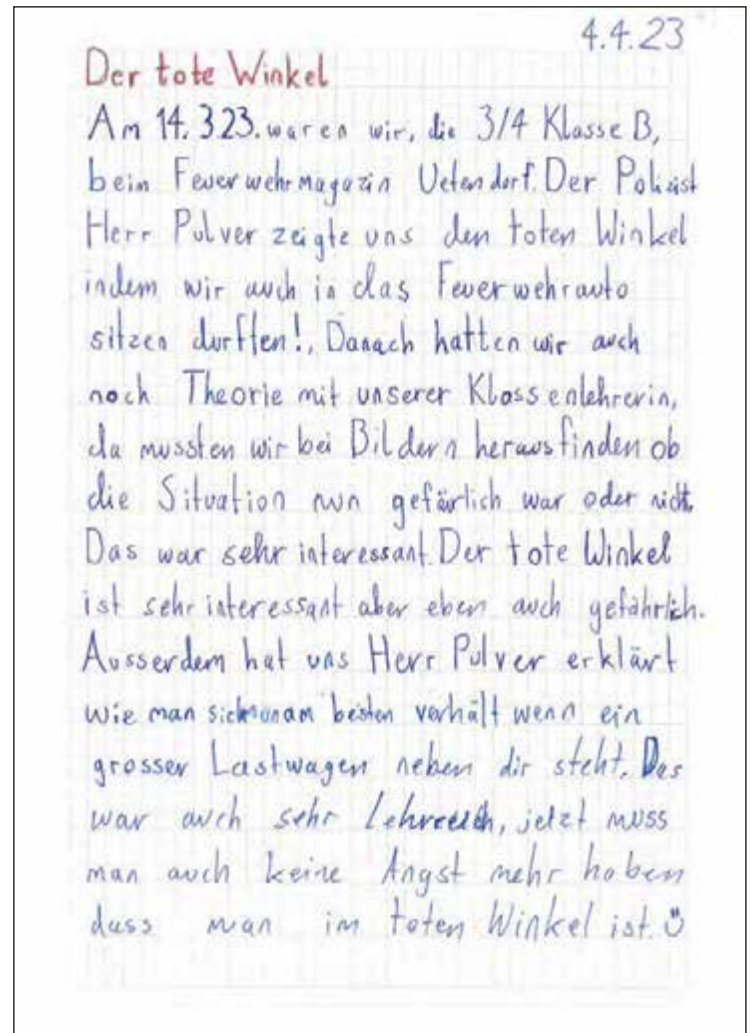 4.4.23
Der tote Winkel
Am 14.3 23. waren wir, die 3/4 Klasse B,
beim Feuerwehrmagazin Uetendorf. Der Polizist
Herr Pulver zeigte uns den toten Winkel
indem wir auch in das Feuerwehrauto
sitzen durften!, Danach hatten wir auch
noch Theorie mit unserer Klassenlehrerin,
da mussten wir bei Bildern herausfinden ob
die Situation nun gefärlich war oder nicht.
Das war sehr interessant. Der tote Winkel
ist sehr interessant aber eben auch gefährlich.
Ausserdem hat uns Herr Pulver erklärt
wie man sich nun am besten verhält wenn ein
grosser Lastwagen neben dir steht. Das
war auch sehr Lehrreich, jetzt muss
man auch keine Angst mehr haben
dass man im toten Winkel ist. ü